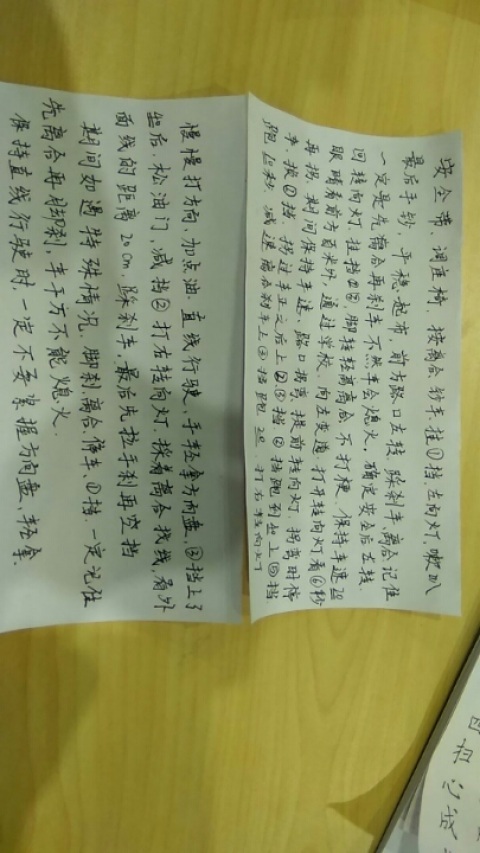 安全带、调座椅、按离合刹车.挂①挡.左向灯.喇叭
最后手刹，平稳起布 前方路口左转.踩刹车,离合记住
一定是先离合再刹车不然车会熄火。确定安全后左转.
回转向灯.挂挡②③.脚轻轻离合.不打梗.保持车速20
眼睛看前方百米外,通过学校、向左变道 打开转向灯看⑥秒
再拐.期间保持车速,路口拐弯提前转向灯.拐弯时停
车.换②挡 拐过车正之后上②③挡 ③挡跑到
跑 秒 减速离合刹车上③挡跑 打右转向灯
慢慢打方向,加点油.直线行驶、手轻拿方向盘、③挡上3
后、松油门,减挡②打右转向灯 踩着离合找线,看外
面线的距离20cm.踩刹车,最后先拉手刹再空挡
期间如遇特殊情况.脚刹.离合.停车、①挡.一定记住
先离合再脚刹,车千万不能熄火.
保持直线行驶时.一定不要掌握方向盘、轻拿.
四
扫